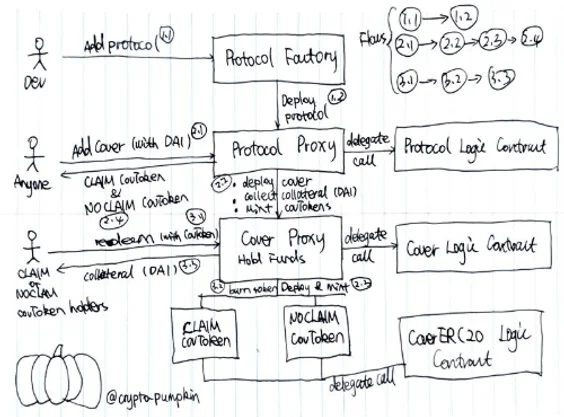 Add protocol 1.1
DEV
Protocol Factory
Flows
1.1 → 1.2
2.1 → 2.2 → 2.3 → 2.4
3.1 → 3.2 → 3.3
Deploy 1.2
protocol
Add Cover (with DAI) 2.1
Anyone
CLAIM CovToken
&
NOCLAIM CovToken
2.4
Protocol Proxy
delegate
call
Protocol Logic Contract
2.2
• deploy cover
• collect collateral (DAI)
• mint covTokens
3.1
redeem (with CovToken)
collateral (DAI) 3.3
CLAIM
or
NOCLAIM
covToken holders
Cover Proxy
Hold Funds
delegate
call
Cover Logic Contract
3.2 burn token Deploy & mint 2.3
CLAIM
CovToken
NOCLAIM
CovToken
CoverERC20 Logic
Contract
delegate call
@crypto-pumpkin